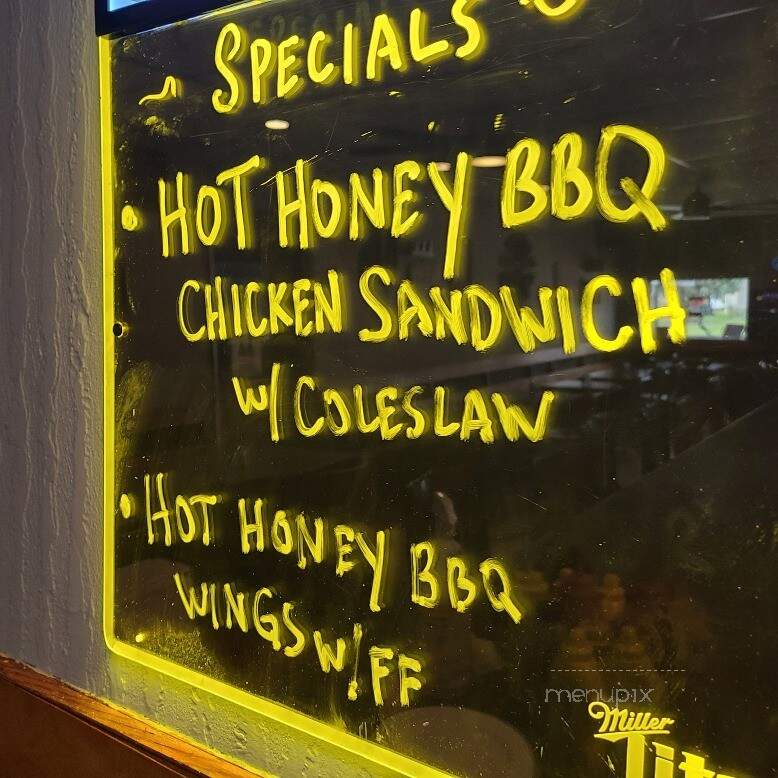 ~ SPECIALS
• HOT HONEY BBQ
CHICKEN SANDWICH
W/ COLESLAW
• HOT HONEY BBQ
WINGS W/ FF
menupix
Miller